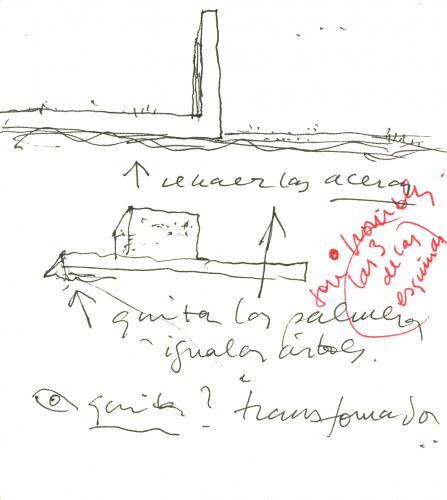 las aceras
las 3
de las
esquinas
quitar las palmeras
igualar árboles.
quitar? transformador